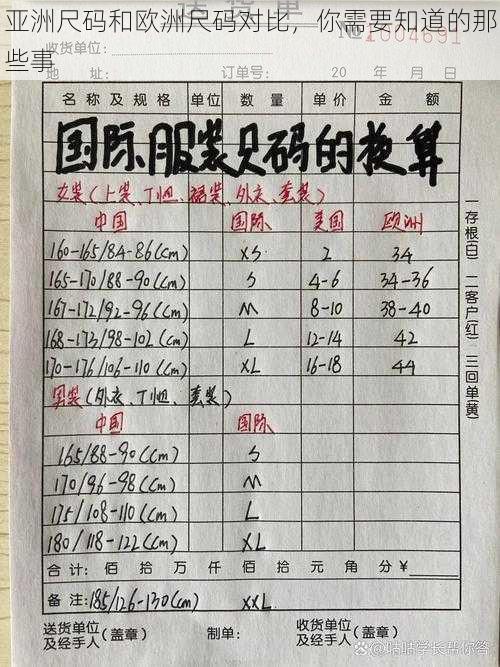 亚洲尺码和欧洲尺码对比，你需要知道的那
些事
送货单
收货单位: № 1004691
地址: 订单号: 20 年 月 日
名称及规格 单位 数量 单价 金额
国际服装尺码的换算
女装(上装、T恤、裙装、外衣、套装)
中国 国际 美国 欧洲
160-165/84-86(cm) XS 2 34
165-170/88-90(cm) S 4-6 34-36
167-172/92-96(cm) M 8-10 38-40
168-173/98-102(cm) L 12-14 42
170-176/106-110(cm) XL 16-18 44
男装(外衣、T恤、套装)
中国 国际
165/88-90(cm) S
170/96-98(cm) M
175/108-110(cm) L
180/118-122(cm) XL
合计: 佰 拾 万 仟 佰 拾 元 角 分¥
备注: 185/126-130(cm) XXL
送货单位 收货单位
及经手人(盖章) 制单: 及经手人(盖章)
一存根(白) 二客户(红) 三回单(黄)
知乎 @咕咕学长帮你答